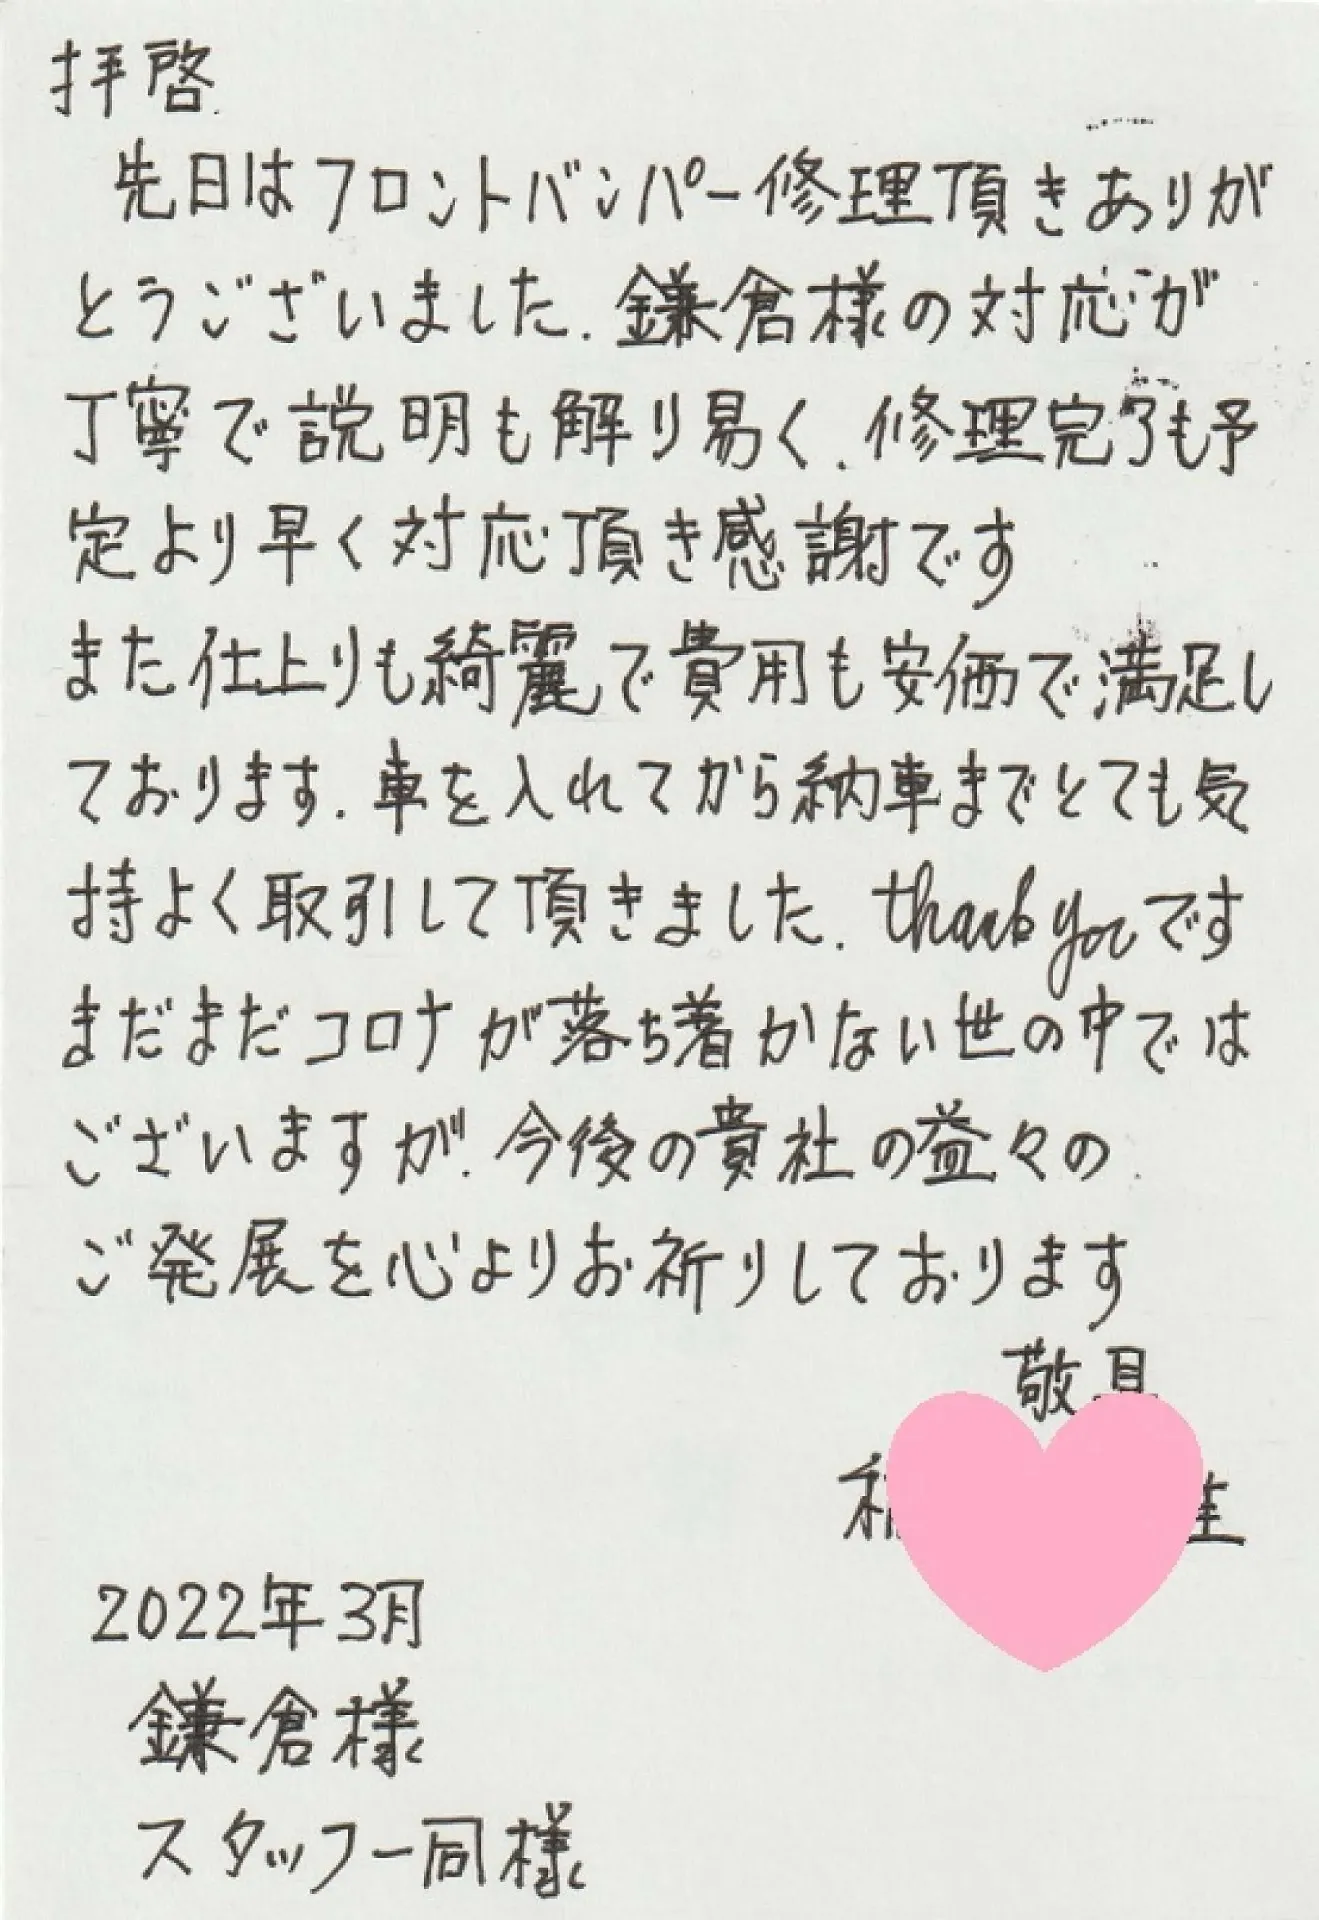 拝啓
先日はフロントバンパー修理頂きありが
とうございました.鎌倉様の対応が
丁寧で説明も解り易く.修理完了も予
定より早く対応頂き感謝です
また仕上りも綺麗で費用も安価で満足し
ております.車を入れてから納車までとても気
持よく取引して頂きました.thank youです
まだまだコロナが落ち着かない世の中では
ございますが.今後の貴社の益々の
ご発展を心よりお祈りしております
敬具
生
2022年3月
鎌倉様
スタッフ一同様